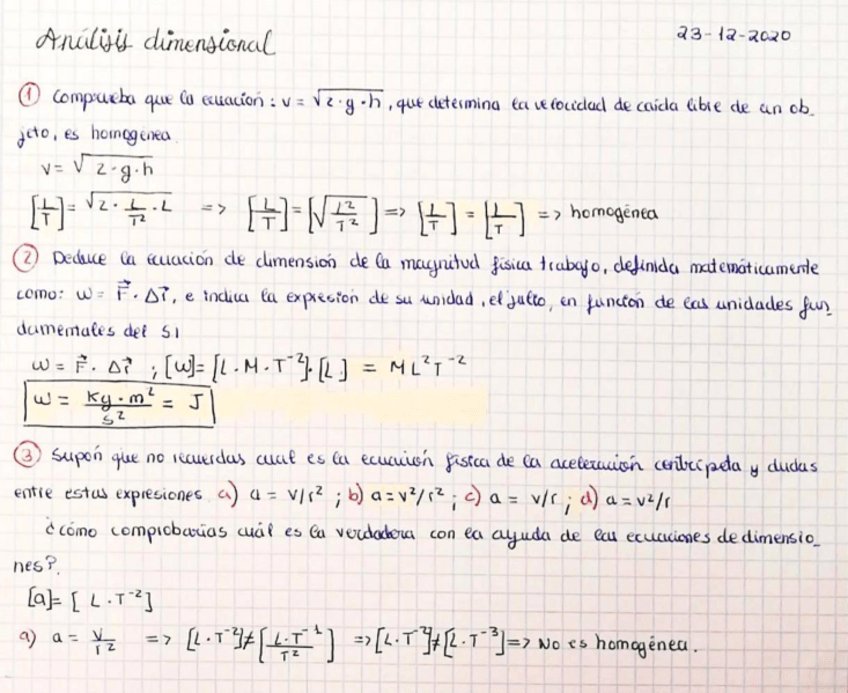 Análisis dimensional
23-12-2020
① Comprueba que la ecuación: v = √2·g·h, que determina la velocidad de caída libre de un ob_
jeto, es homogénea.
v = √2·g·h
[L/T] = √2· L/T² ·L => [L/T] = [√L²/T²] => [L/T] = [L/T] => homogénea
② Deduce la ecuación de dimensión de la magnitud física trabajo, definida matemáticamente
como: W = F⃗ · Δr⃗, e indica la expresión de su unidad, el julio, en función de las unidades fun_
damentales del SI
W = F⃗ · Δr⃗ ; [W] = [L·M·T⁻²]·[L] = ML²T⁻²
W = Kg·m²/s² = J
③ Supón que no recuerdas cual es la ecuación física de la aceleración centrípeta y dudas
entre estas expresiones a) a = v/r² ; b) a = v²/r² ; c) a = v/r ; d) a = v²/r
¿cómo comprobarías cuál es la verdadera con la ayuda de las ecuaciones de dimensio_
nes?.
[a] = [L·T⁻²]
a) a = v/r² => [L·T⁻²] ≠ [L·T⁻¹/T²] => [L·T⁻²] ≠ [L·T⁻³] => No es homogénea.